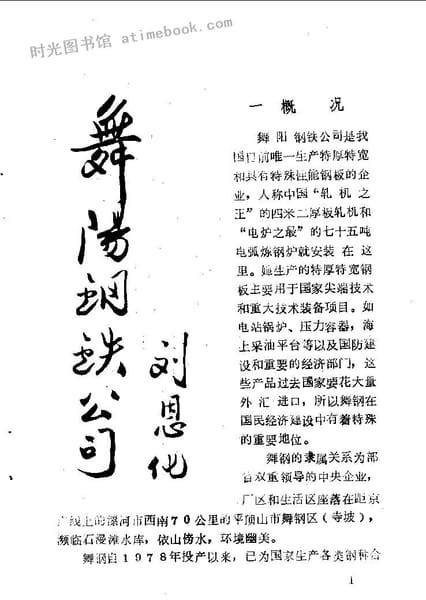 时光图书馆 atimebook.com
舞陽钢铁公司
刘恩化
一 概 况
舞阳钢铁公司是我
国目前唯一生产特厚特宽
和具有特殊性能钢板的企
业，人称中国“轧机之
王”的四米二厚板轧机和
“电炉之最”的七十五吨
电弧炼钢炉就安装在这
里。她生产的特厚特宽钢
板主要用于国家尖端技术
和重大技术装备项目。如
电站锅炉、压力容器，海
上采油平台等以及国防建
设和重要的经济部门，这
些产品过去国家要花大量
外汇进口，所以舞钢在
国民经济建设中有着特殊
的重要地位。
舞钢的隶属关系为部
省双重领导的中央企业，
厂区和生活区座落在距京
广线上的漯河市西南70公里的平顶山市舞钢区（寺坡），
濒临石漫滩水库，依山傍水，环境幽美。
舞钢自1978年投产以来，已为国家生产各类钢种合
1